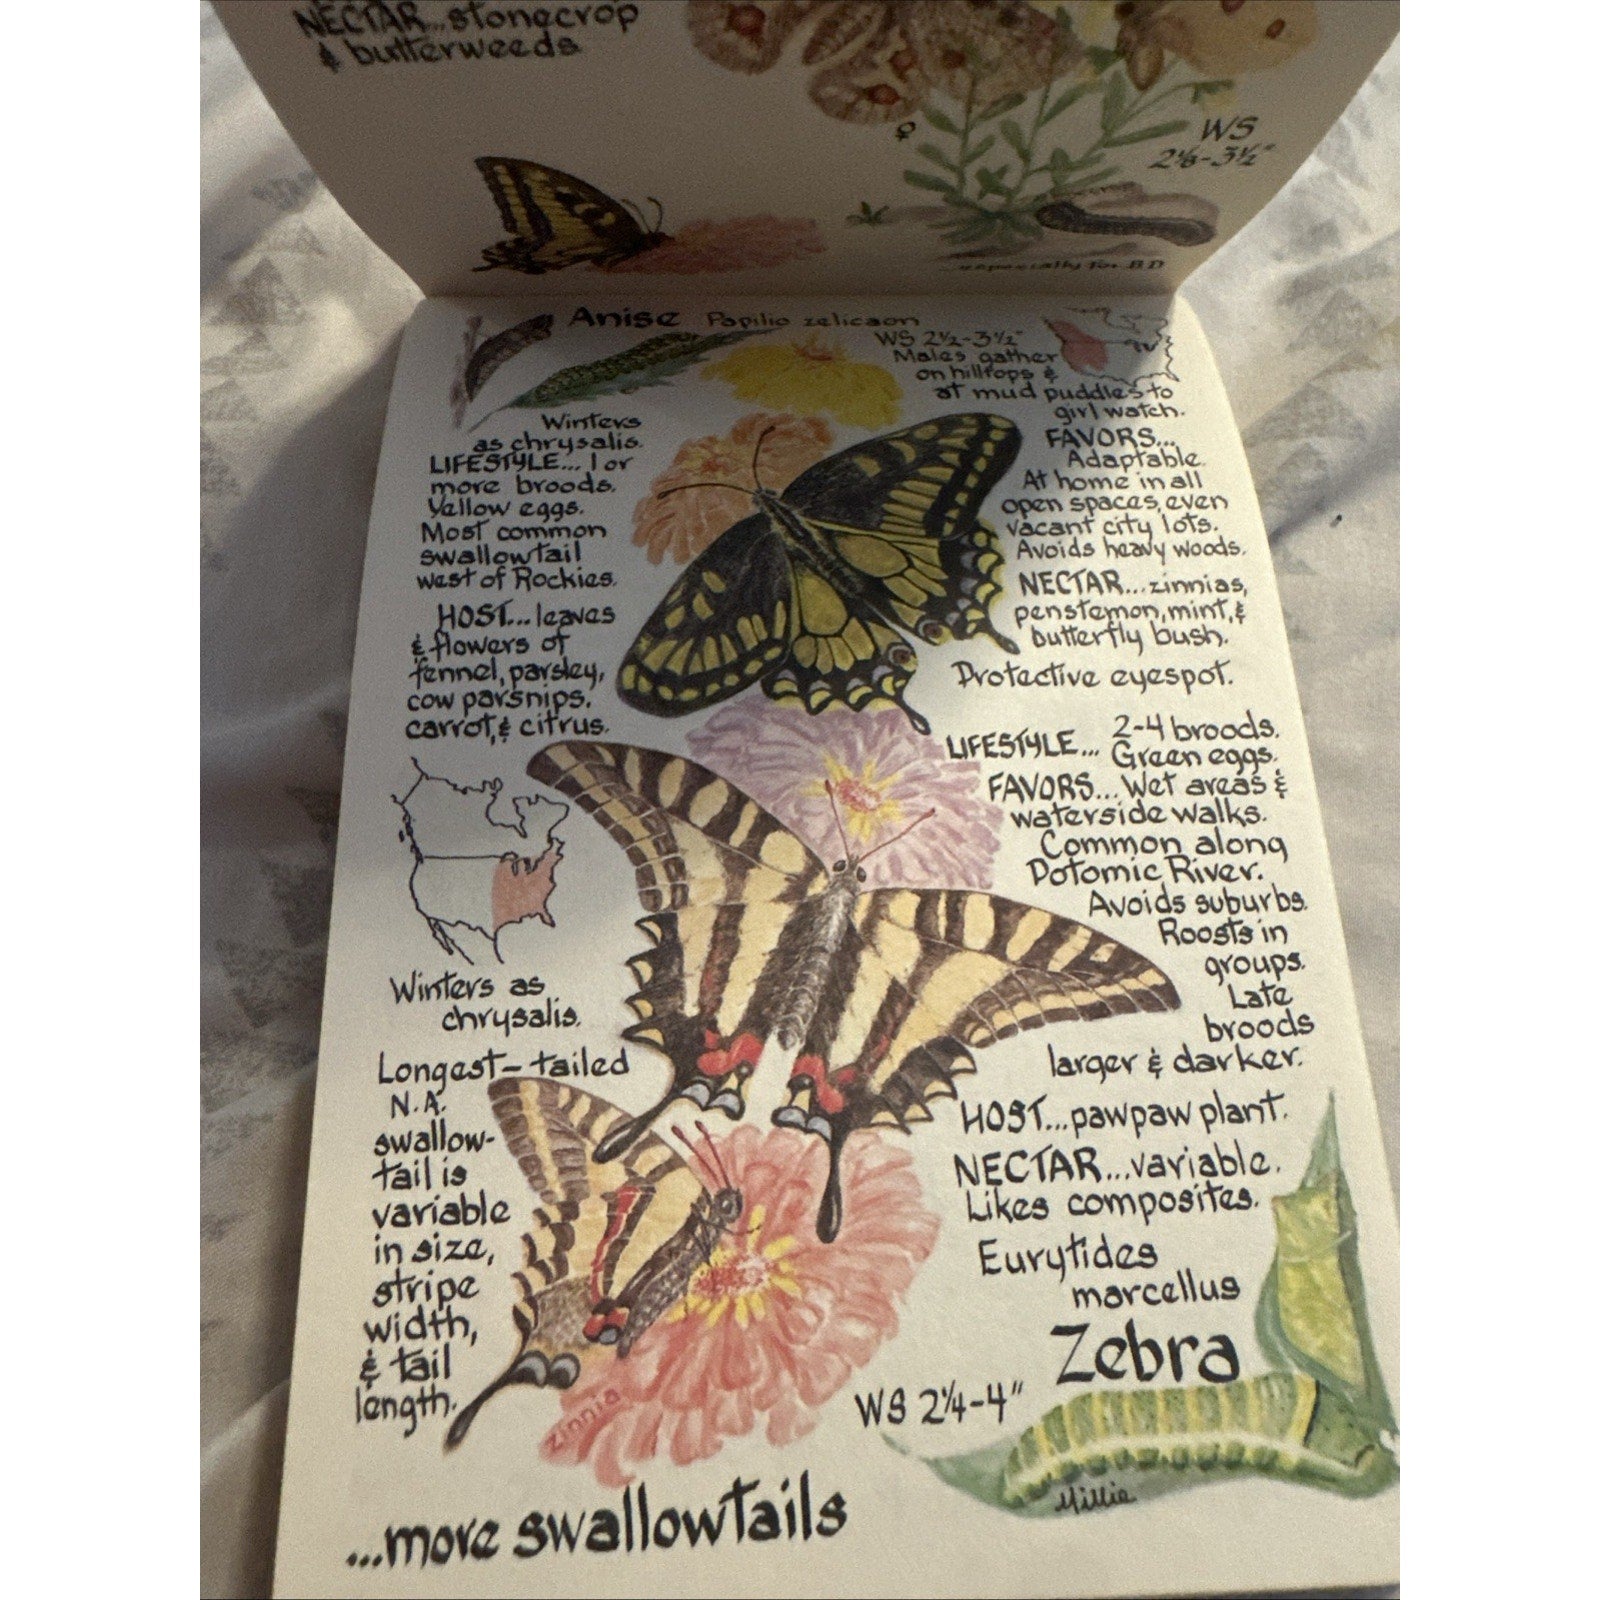 NECTAR...stonecrop
& butterweeds
♀
WS
2⅛-3½"
especially for BD
Anise Papilio zelicaon
WS 2½-3½"
Males gather
on hilltops &
at mud puddles to
girl watch.
Winters
as chrysalis.
LIFESTYLE... 1 or
more broods.
Yellow eggs.
Most common
swallowtail
west of Rockies.
HOST...leaves
& flowers of
fennel, parsley,
cow parsnips,
carrot, & citrus.
FAVORS...
Adaptable.
At home in all
open spaces, even
vacant city lots.
Avoids heavy woods.
NECTAR...zinnias,
penstemon, mint, &
butterfly bush.
Protective eyespot.
LIFESTYLE... 2-4 broods.
Green eggs.
FAVORS...Wet areas &
waterside walks.
Common along
Potomic River.
Avoids suburbs.
Roosts in
groups.
Late
broods
larger & darker.
Winters as
chrysalis.
Longest-tailed
N.A.
swallow-
tail is
variable
in size,
stripe
width,
& tail
length.
HOST...pawpaw plant.
NECTAR...variable.
Likes composites.
Eurytides
marcellus
Zebra
WS 2¼-4"
zinnia
Millie
...more swallowtails